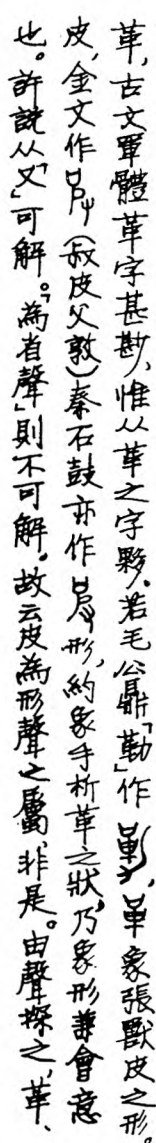 革，古文單體革字甚尠，惟从革之字夥，若毛公鼎「勒」作，革象張獸皮之形。
皮，金文作（叔皮父敦）秦石鼓亦作形，約象手析革之狀，乃象形兼會意
也。許說从「又」可解。「為省聲」則不可解。故云皮為形聲之屬，非是。由聲探之，革、